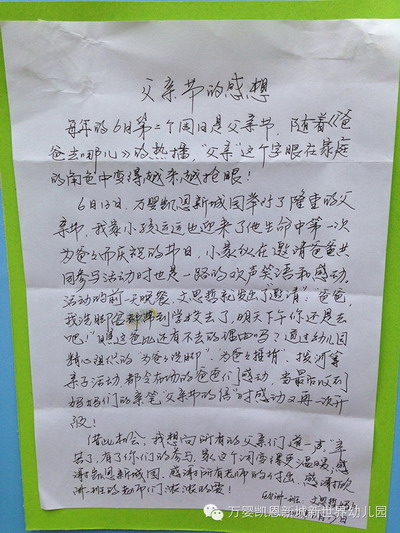 父亲节的感想
每年的6月第三个周日是父亲节，随着《爸
爸去哪儿》的热播，“父亲”这个字眼在家庭
的角色中变得越来越抢眼！
6月13日，万婴凯恩新城园举行了隆重的父
亲节，我家小孩运运也迎来了他生命中第一次
为爸爸而庆祝的节日，小家伙在邀请爸爸共
同参与活动时也是一路的欢声笑语和感动。
活动的前一天晚餐，文思哲就发出了邀请“爸爸，
我洗脚盆都带到学校去了，明天下午你还是去
吧！”瞧这爸比还有不去的理由吗？通过幼儿园
精心组织的“为爸爸洗脚”“为爸爸推椅”拔河等
亲子活动都令在场的爸爸们感动，当最后收到
妈妈们的亲笔“父亲节的信”时感动又再一次开
启！
借此机会，我想向所有的父亲们道一声“辛
苦了，有了你们的参与，家这个词变得更温暖，感
谢凯恩新城园，感谢所有老师的付出，感谢欣
班的老师们浓浓的爱！
班：文思哲
万婴凯恩新城新世界幼儿园